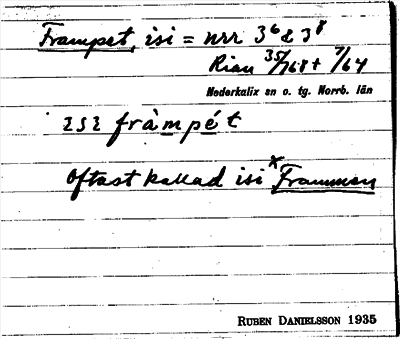 Frampet, isi = nrr 3⁶ & 3⁸
Rian 35/768 + 7/64
Nederkalix sn o. tg. Norrb. län
252 fràmpét
Oftast kallad isi × Framman
RUBEN DANIELSSON 1935